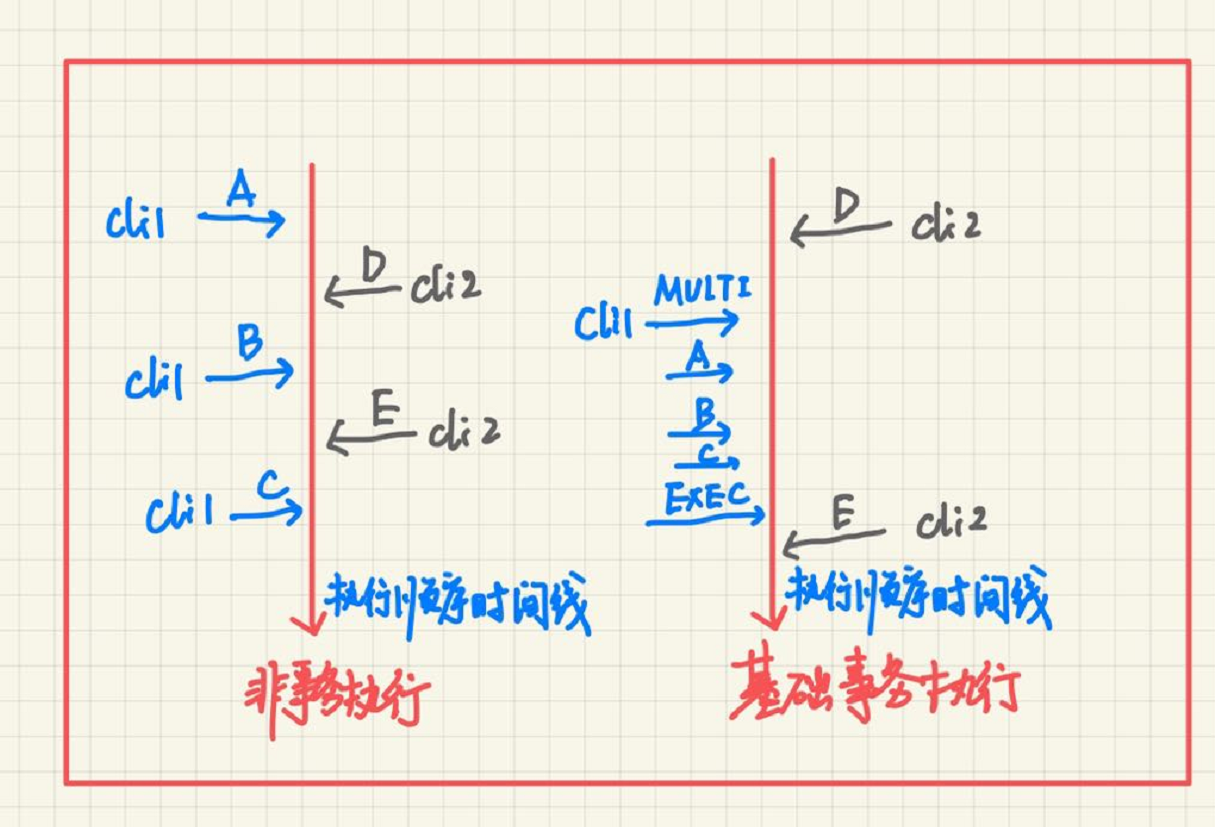 cli1 A
D cli2
cli1 B
E cli2
cli1 C
执行顺序时间线
非事务执行
D cli2
cli1 MULTI
A
B
C
EXEC
E cli2
执行顺序时间线
基础事务执行